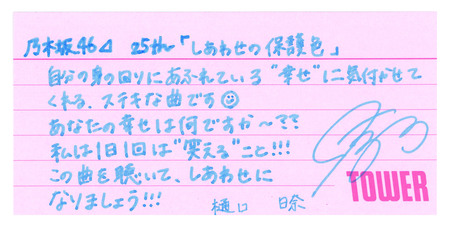 乃木坂46⊿ 25th「しあわせの保護色」
自分の身の回りにあふれている"幸せ"に気付かせて
くれる、ステキな曲です☺
あなたの幸せは何ですか〜??
私は1日1回は"笑える"こと!!!
この曲を聴いて、しあわせに
なりましょう!!!
樋口 日奈
TOWER